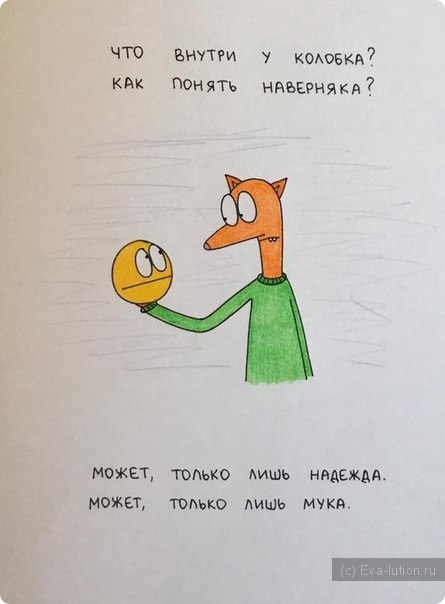 ЧТО ВНУТРИ У КОЛОБКА?
КАК ПОНЯТЬ НАВЕРНЯКА?
МОЖЕТ, ТОЛЬКО ЛИШЬ НАДЕЖДА.
МОЖЕТ, ТОЛЬКО ЛИШЬ МУКА.
(c) Eva-lution.ru